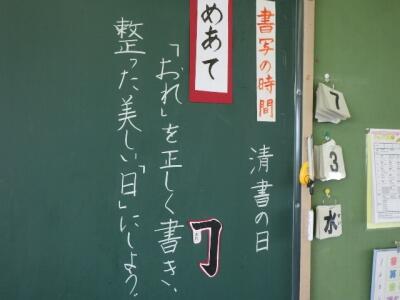 書写の時間
めあて
清書の日
「おれ」を正しく書き、
整った美しい「日」にしよう。
7
3
水